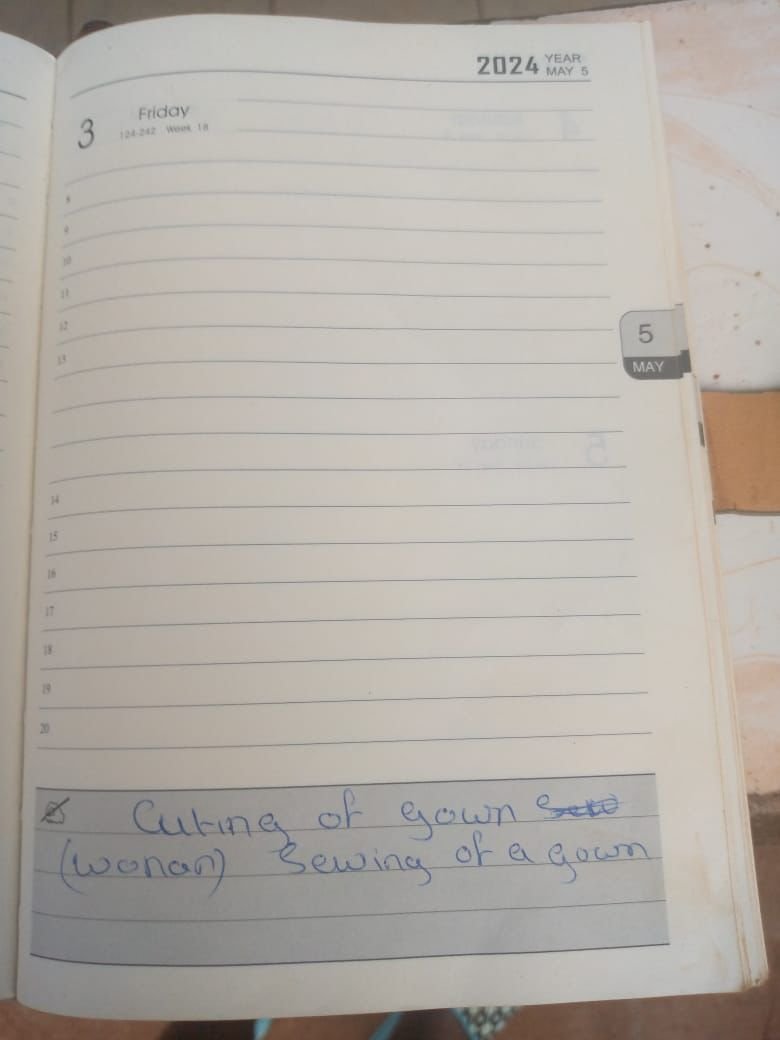 2024 YEAR
MAY 5
3 Friday
124-242 Week 18
8
9
10
11
12
13
5
MAY
14
15
16
17
18
19
20
Cuting of gown
(wonan) Sewing of a gown